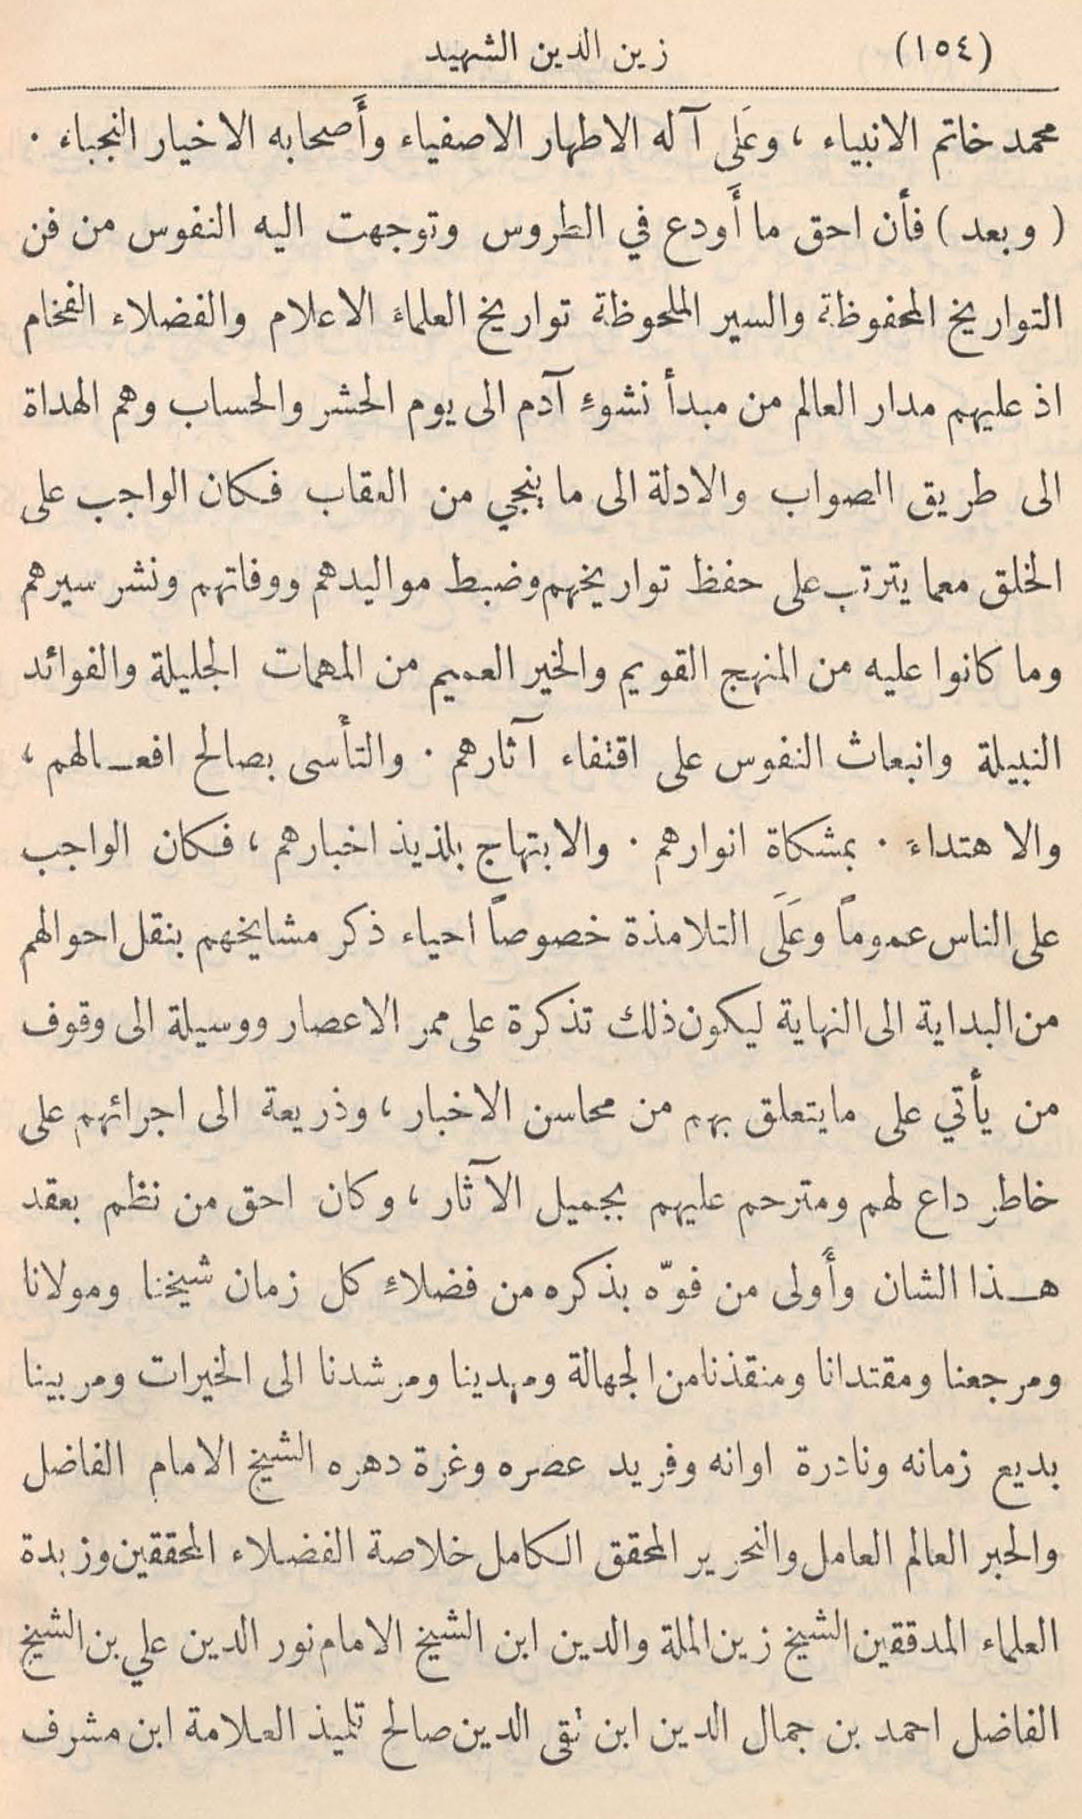 (١٥٤) زين الدين الشهيد
محمد خاتم الانبياء ، وعَلى آله الاطهار الاصفياء وأَصحابه الاخيار النجباء .
( وبعد ) فأن احق ما أَودع في الطروس وتوجهت اليه النفوس من فن
التواريخ المحفوظة والسير الملحوظة تواريخ العلماء الاعلام والفضلاء الفخام
اذ عليهم مدار العالم من مبدأ نشوءِ آدم الى يوم الحشر والحساب وهم الهداة
الى طريق الصواب والادلة الى ما ينجي من العقاب فكان الواجب على
الخلق معما يترتب على حفظ تواريخهم وضبط مواليدهم ووفاتهم ونشر سيرهم
وما كانوا عليه من المنهج القويم والخير العميم من المهمات الجليلة والفوائد
النبيلة وانبعاث النفوس على اقتفاء آثارهم . والتأسى بصالح افعـالهم ،
والاهتداء . بمشكاة انوارهم . والابتهاج بلذيذ اخبارهم ، فكان الواجب
على الناس عموماً وعَلَى التلامذة خصوصاً احياء ذكر مشايخهم بنقل احوالهم
من البداية الى النهاية ليكون ذلك تذكرة على ممر الاعصار ووسيلة الى وقوف
من يأتي على ما يتعلق بهم من محاسن الاخبار ، وذريعة الى اجرائهم على
خاطرِ داع لهم ومترحم عليهم بجميل الآثار ، وكان احق من نظم بعقد
هـذا الشان وأَولى من فوّه بذكره من فضلاءِ كل زمان شيخنا ومولانا
ومرجعنا ومقتدانا ومنقذنا من الجهالة ومهدينا ومرشدنا الى الخيرات ومربينا
بديع زمانه ونادرة اوانه وفريد عصره وغرة دهره الشيخ الامام الفاضل
والحبر العالم العامل والنحرير المحقق الكامل خلاصة الفضلاء المحققين وزبدة
العلماء المدققين الشيخ زين الملة والدين ابن الشيخ الامام نور الدين علي بن الشيخ
الفاضل احمد بن جمال الدين ابن تقى الدين صالح تلميذ العلامة ابن مشرف